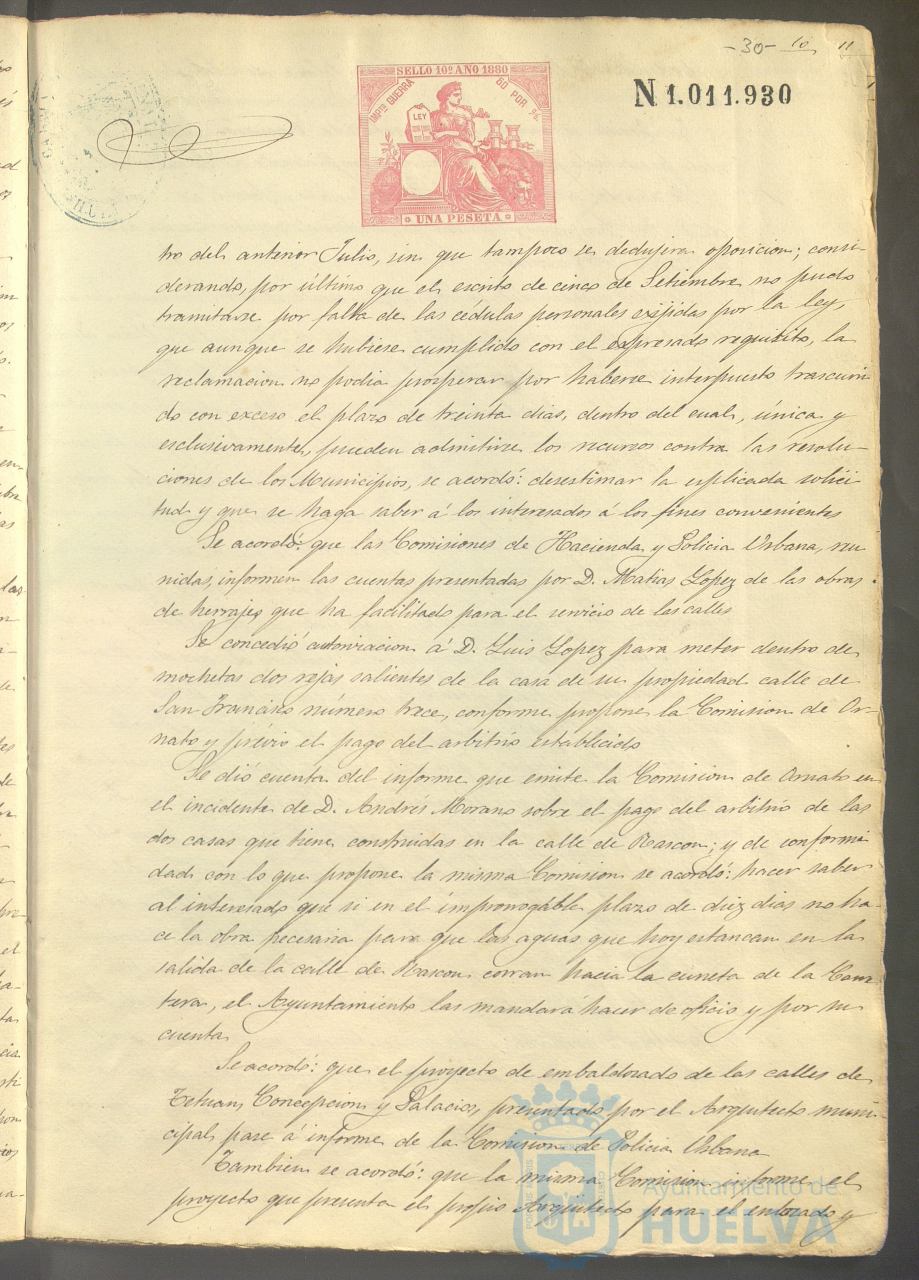 -30- 10 11
SELLO 10º AÑO 1880
IMPTO GUERRA 50 POR %
LEY
UNA PESETA
N 1.011.930
tro del anterior Julio, sin que tampoco se dedujera oposicion; consi-
derando, por último que el escrito de cinco de Setiembre no pudo
tramitarse por falta de las cédulas personales exijidas por la ley,
que aunque se hubiese cumplido con el expresado requisito, la
reclamacion no podia prosperar por haberse interpuesto trascurri-
do con exceso el plazo de treinta dias, dentro del cual, única y
esclusivamente, pueden admitirse los recursos contra las resolu-
ciones de los Municipios, se acordó: desestimar la esplicada solici-
tud y que se haga saber á los interesados á los fines convenientes
Se acordó: que las Comisiones de Hacienda y Policia Urbana, reu-
nidas, informen las cuentas presentadas por D. Matias Lopez de las obras
de herrajes que ha facilitado para el servicio de las calles
Se concedió autorizacion á D. Luis Lopez para meter dentro de
mochetas dos rejas salientes de la casa de su propiedad calle de
San Francisco número trece, conforme propone la Comision de Or-
nato y prévio el pago del arbitrio establecido
Se dió cuenta del informe que emite la Comision de Ornato en
el incidente de D. Andrés Morano sobre el pago del arbitrio de las
dos casas que tiene construidas en la calle de Rascon; y de conformi-
dad con lo que propone la misma Comision se acordó: hacer saber
al interesado que si en el improrogáble plazo de diez dias no ha-
ce la obra necesaria para que las aguas que hoy estancan en la
salida de la calle de Rascon corran hacia la cuneta de la Carre-
tera, el Ayuntamiento las mandará hacer de oficio y por su
cuenta
Se acordó: que el proyecto de embaldosado de las calles de
Tetuan, Concepcion y Palacios, presentado por el Arquitecto muni-
cipal pase á informe de la Comision de Policia Urbana
Tambien se acordó: que la misma Comision informe el
proyecto que presenta el propio Arquitecto para el enlosado y
Ayuntamiento de
HUELVA